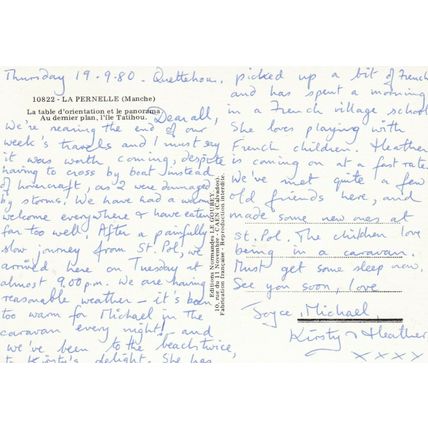 Thursday 19.9.80. Quettehou.
10822 - LA PERNELLE (Manche)
La table d'orientation et le panorama
Au dernier plan, l'île Tatihou.
Dear all,
We're nearing the end of our
week's travels and I must say
it was worth coming, despite
having to cross by boat instead
of hovercraft, as 2 were damaged
by storms. We have had a warm
welcome everywhere & have eaten
far too well. After a painfully
slow journey from St. Pol, we
arrived here on Tuesday at
almost 9.00pm. We are having
reasonable weather - it's been
too warm for Michael in the
caravan every night! and
we've been to the beach twice,
to Kirsty's delight. She has
Editions Normandes LE GOUBEY
10, rue du 11 Novembre - CAEN (Calvados)
Fabrication française - Reproduction interdite.
picked up a bit of French
and has spent a morning
in a French village school
She loves playing with
French children. Heather
is coming on at a fast rate.
We've met quite a few
old friends here, and
made some new ones at
St. Pol. The children love
being in a caravan.
Must get some sleep now.
See you soon, love
Joyce, Michael,
Kirsty & Heather
xxxx